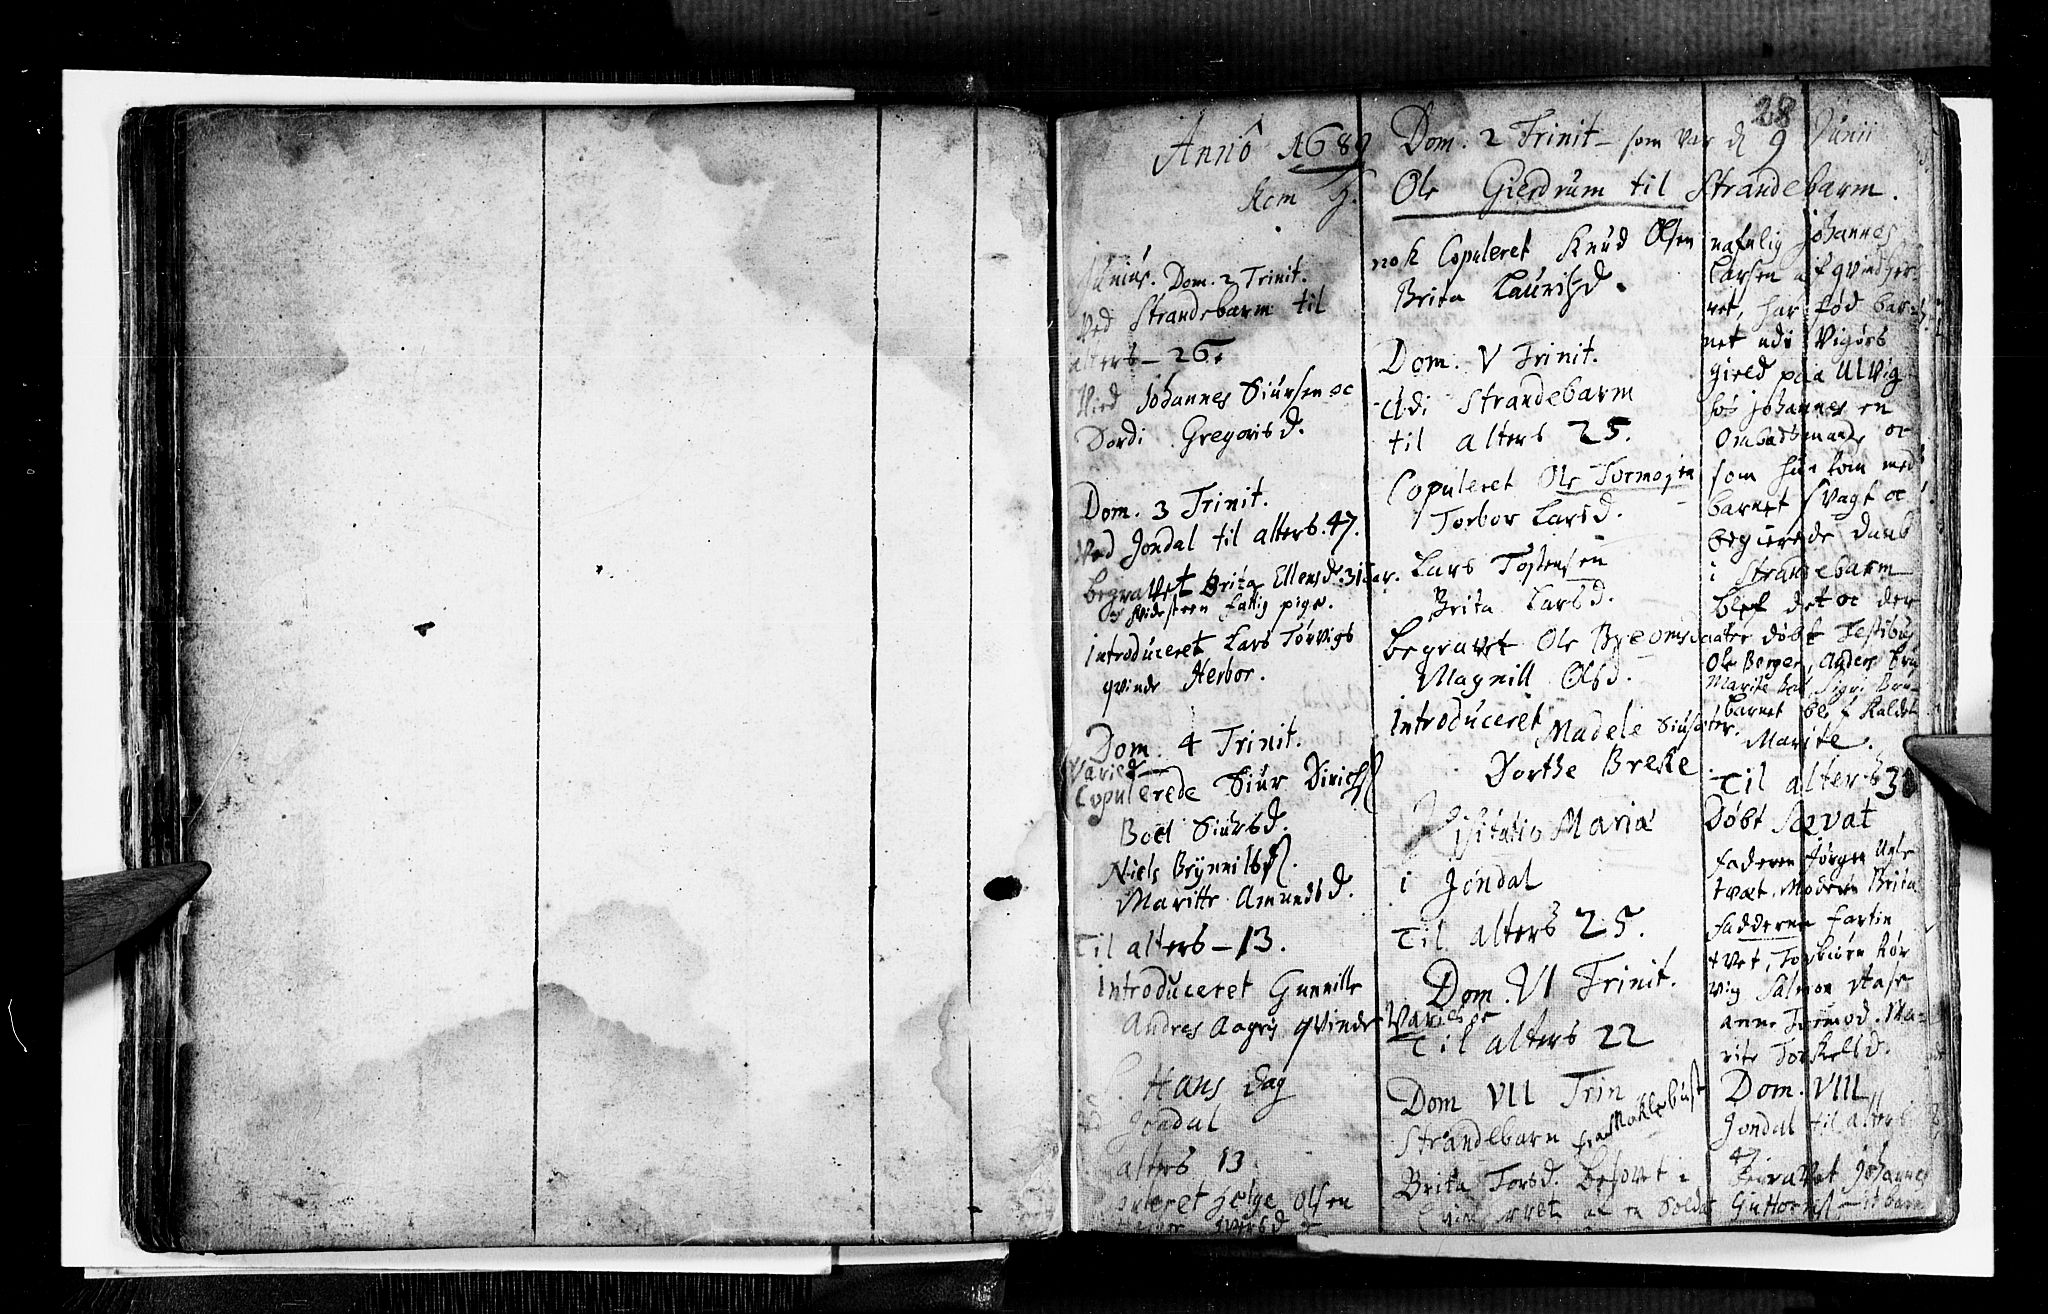 28
Anno 1689 Dom. 2 Trinit – som var d 9 Junii
Kom H. Ole Gierdrum til Strandebarm.
Junius. Dom. 2 Trinit.
Ved Strandebarm til
alters – 26.
Vied Johannes Siursen oc
Dordi Gregorisd.
Dom. 3 Trinit.
Ved Jondal til alters. 47.
begravet Brita Ellensd. 31 aar.
fattig pige.
Introduceret Lars Torvigs
qvinde Herbor.
Dom. 4 Trinit.
Copulerede Siur
Boel Siursd.
Niels Brynnils
Maritte Amundsd.
Til alters – 13.
Introduceret Gunnille
Andres Aagris qvinde
S. Hans dag
Jondal
alters 13
Helge Olsen
nok Copuleret Knud Olsen
Brita Lauritzd.
Dom. V Trinit.
Udi Strandebarm
til alters 25.
Copuleret Ole Tormosen
Torbor Larsd.
Lars Tostensen
Brita Larsd.
begravet Ole
Magnill Olsd.
Introduceret Madele
Dorthe Breke
Visitatio Mariæ
i Jondal
Til alters 25.
Dom. VI Trinit.
Til alters 22
Dom VII Trin
Strandebarn fra Moklebust
Brita Torsd. besovet i
af en Soldat
nafnlig Johannes
Larsen af qvindher-
ret, har fød bar-
net udi Vigørs
gield paa Ulvig
hos Johannes en
Ombudsmand, oc
som hun kom med
barnet svagt oc
begierede daab
i Strandebarm
blef det oc der
døbt Testibus
Ole Berger, Anders
Marite Sigri
barnet blef kaldet
Marite.
Til alters 30
Døbt Sævat
faderen Jørgen
tvæt. Moderen Brita
fadderne
tvet, Torbiørn
vig Salmon
Anne Tormod. Ma-
rite Torkelsd.
Dom. VIII
Jondal til alters
47
Begravet Johannes
Guttorms – it barn